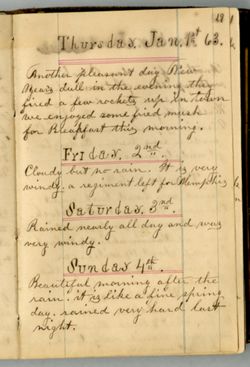 18
Thursday. Jan. 1st 63.
Another pleasant day New
Years dull in the evening they
fired a few rockets up in town
we enjoyed some fried mush
for Breakfast this morning.
Friday. 2nd.
Cloudy but no rain. It is very
windy. a regiment left for Memphis
Saturday. 3rd.
Rained nearly all day and was
very windy.
Sunday 4th.
Beautiful morning after the
rain. it is like a fine spring
day. rained very hard last
night.